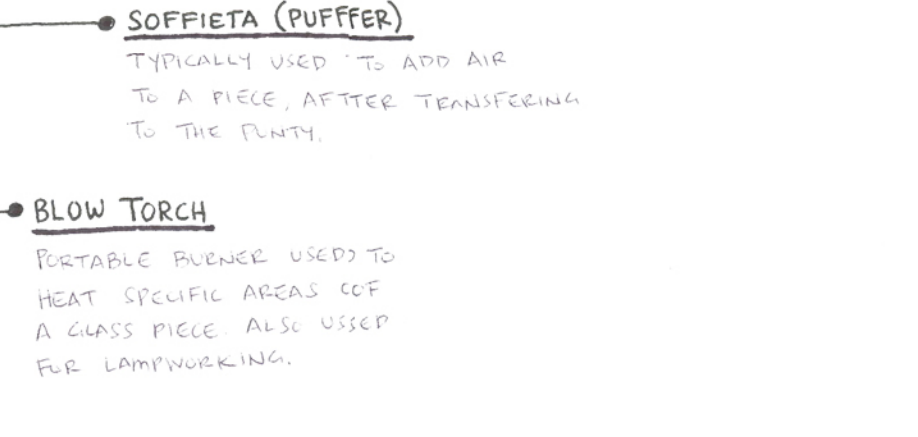 SOFFIETA (PUFFFER)
TYPICALLY USED TO ADD AIR
TO A PIECE, AFTTER TRANSFERING
TO THE PUNTY.
BLOW TORCH
PORTABLE BURNER USED TO
HEAT SPECIFIC AREAS COF
A GLASS PIECE. ALSO USSED
FUR LAMPWORKING.